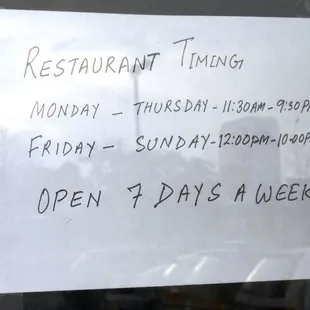 RESTAURANT TIMING
MONDAY - THURSDAY - 11:30AM - 9:30P
FRIDAY - SUNDAY - 12:00PM - 10:00P
OPEN 7 DAYS A WEEK